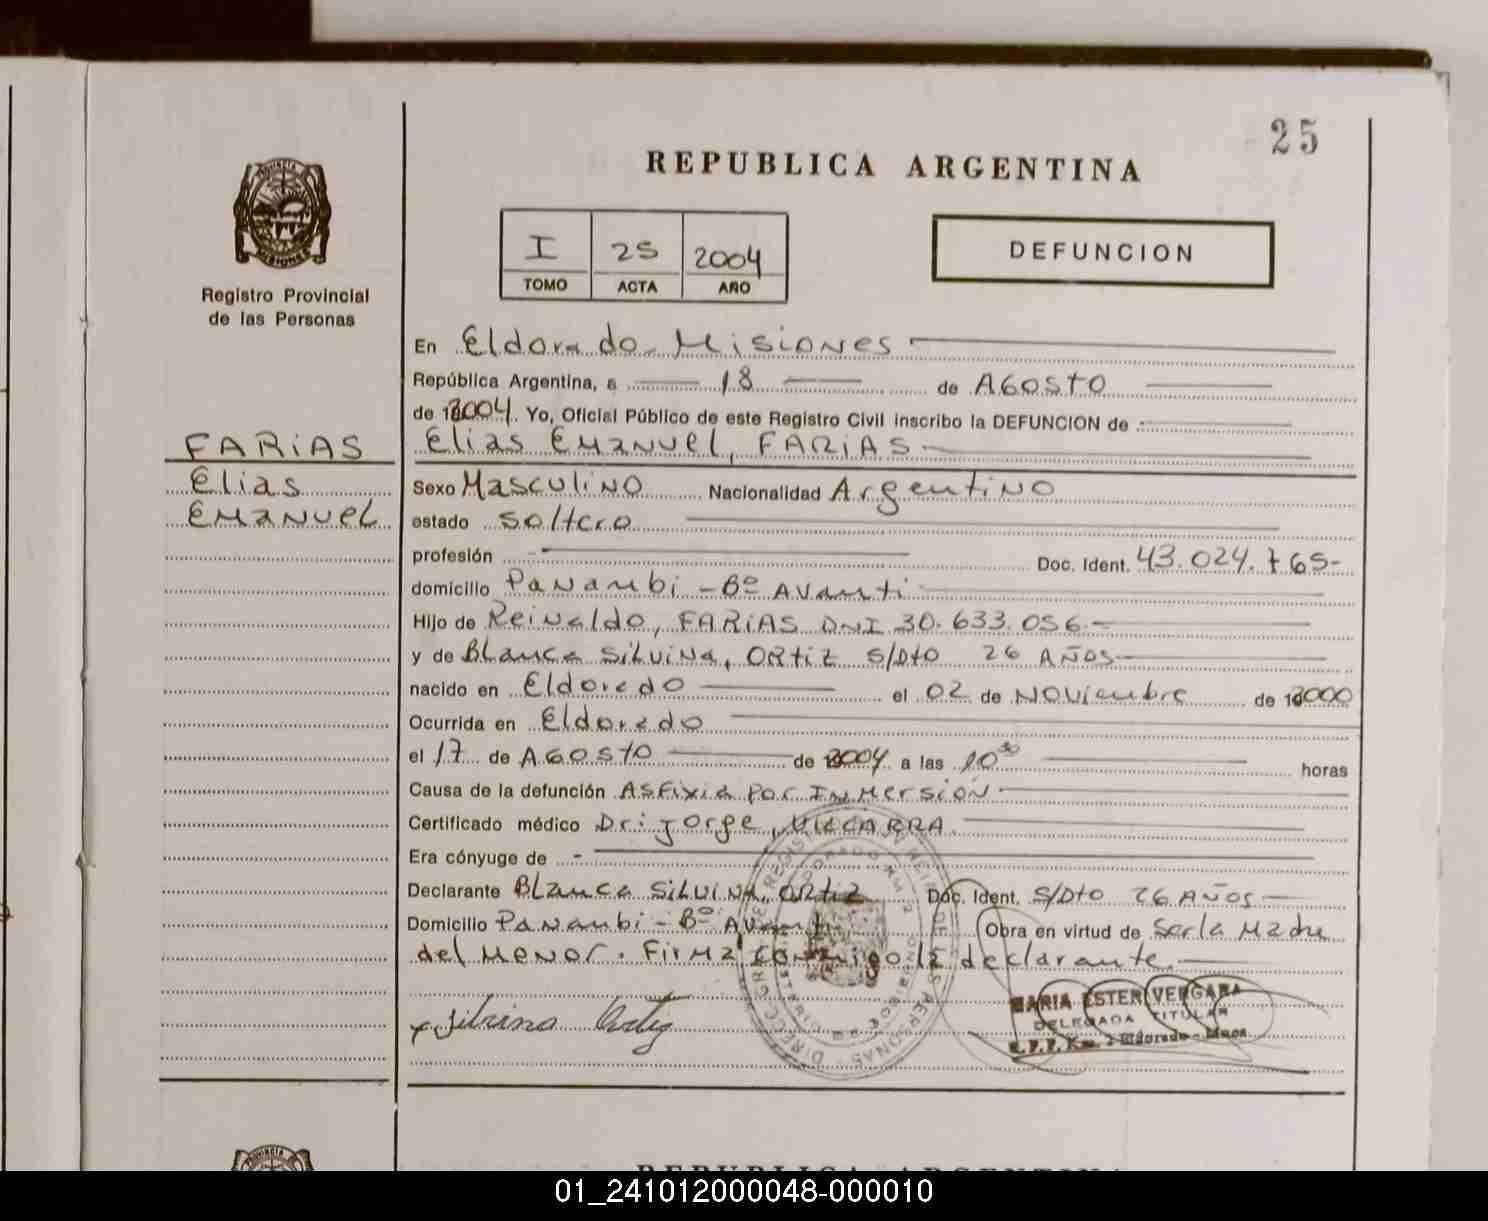 25
REPUBLICA ARGENTINA
PROVINCIA
MISIONES
Registro Provincial
de las Personas
I 25 2004
TOMO ACTA AÑO
DEFUNCION
En Eldorado - Misiones
República Argentina, a 18 de AGOSTO
de 2004. Yo, Oficial Público de este Registro Civil inscribo la DEFUNCION de
Elias Emanuel, FARIAS
FARIAS
Elias
Emanuel
Sexo Masculino Nacionalidad Argentino
estado soltero
profesión Doc. Ident. 43.024.765-
domicilio Panambi - Bº Avanti
Hijo de Reinaldo, FARIAS DNI 30.633.056.-
y de Blanca Silvina, ORTIZ S/Dto 26 AÑOS
nacido en Eldorado el 02 de Noviembre de 2000
Ocurrida en Eldorado
el 17 de AGOSTO de 2004 a las 10³⁰ horas
Causa de la defunción Asfixia por Inmersión
Certificado médico Dr: Jorge,
Era cónyuge de -
Declarante Blanca Silvina, ORTIZ Doc. Ident. S/Dto 26 AÑOS
Domicilio Panambi - Bº Avanti Obra en virtud de Ser la Madre
del Menor. Firma conmigo la declarante.
x Silvina Ortiz
MARIA ESTER VERGARA
DELEGADA TITULAR
R.P.P. Km. 2 Eldorado - Mnes.
PROVINCIA
REPUBLICA ARGENTINA
01_241012000048-000010